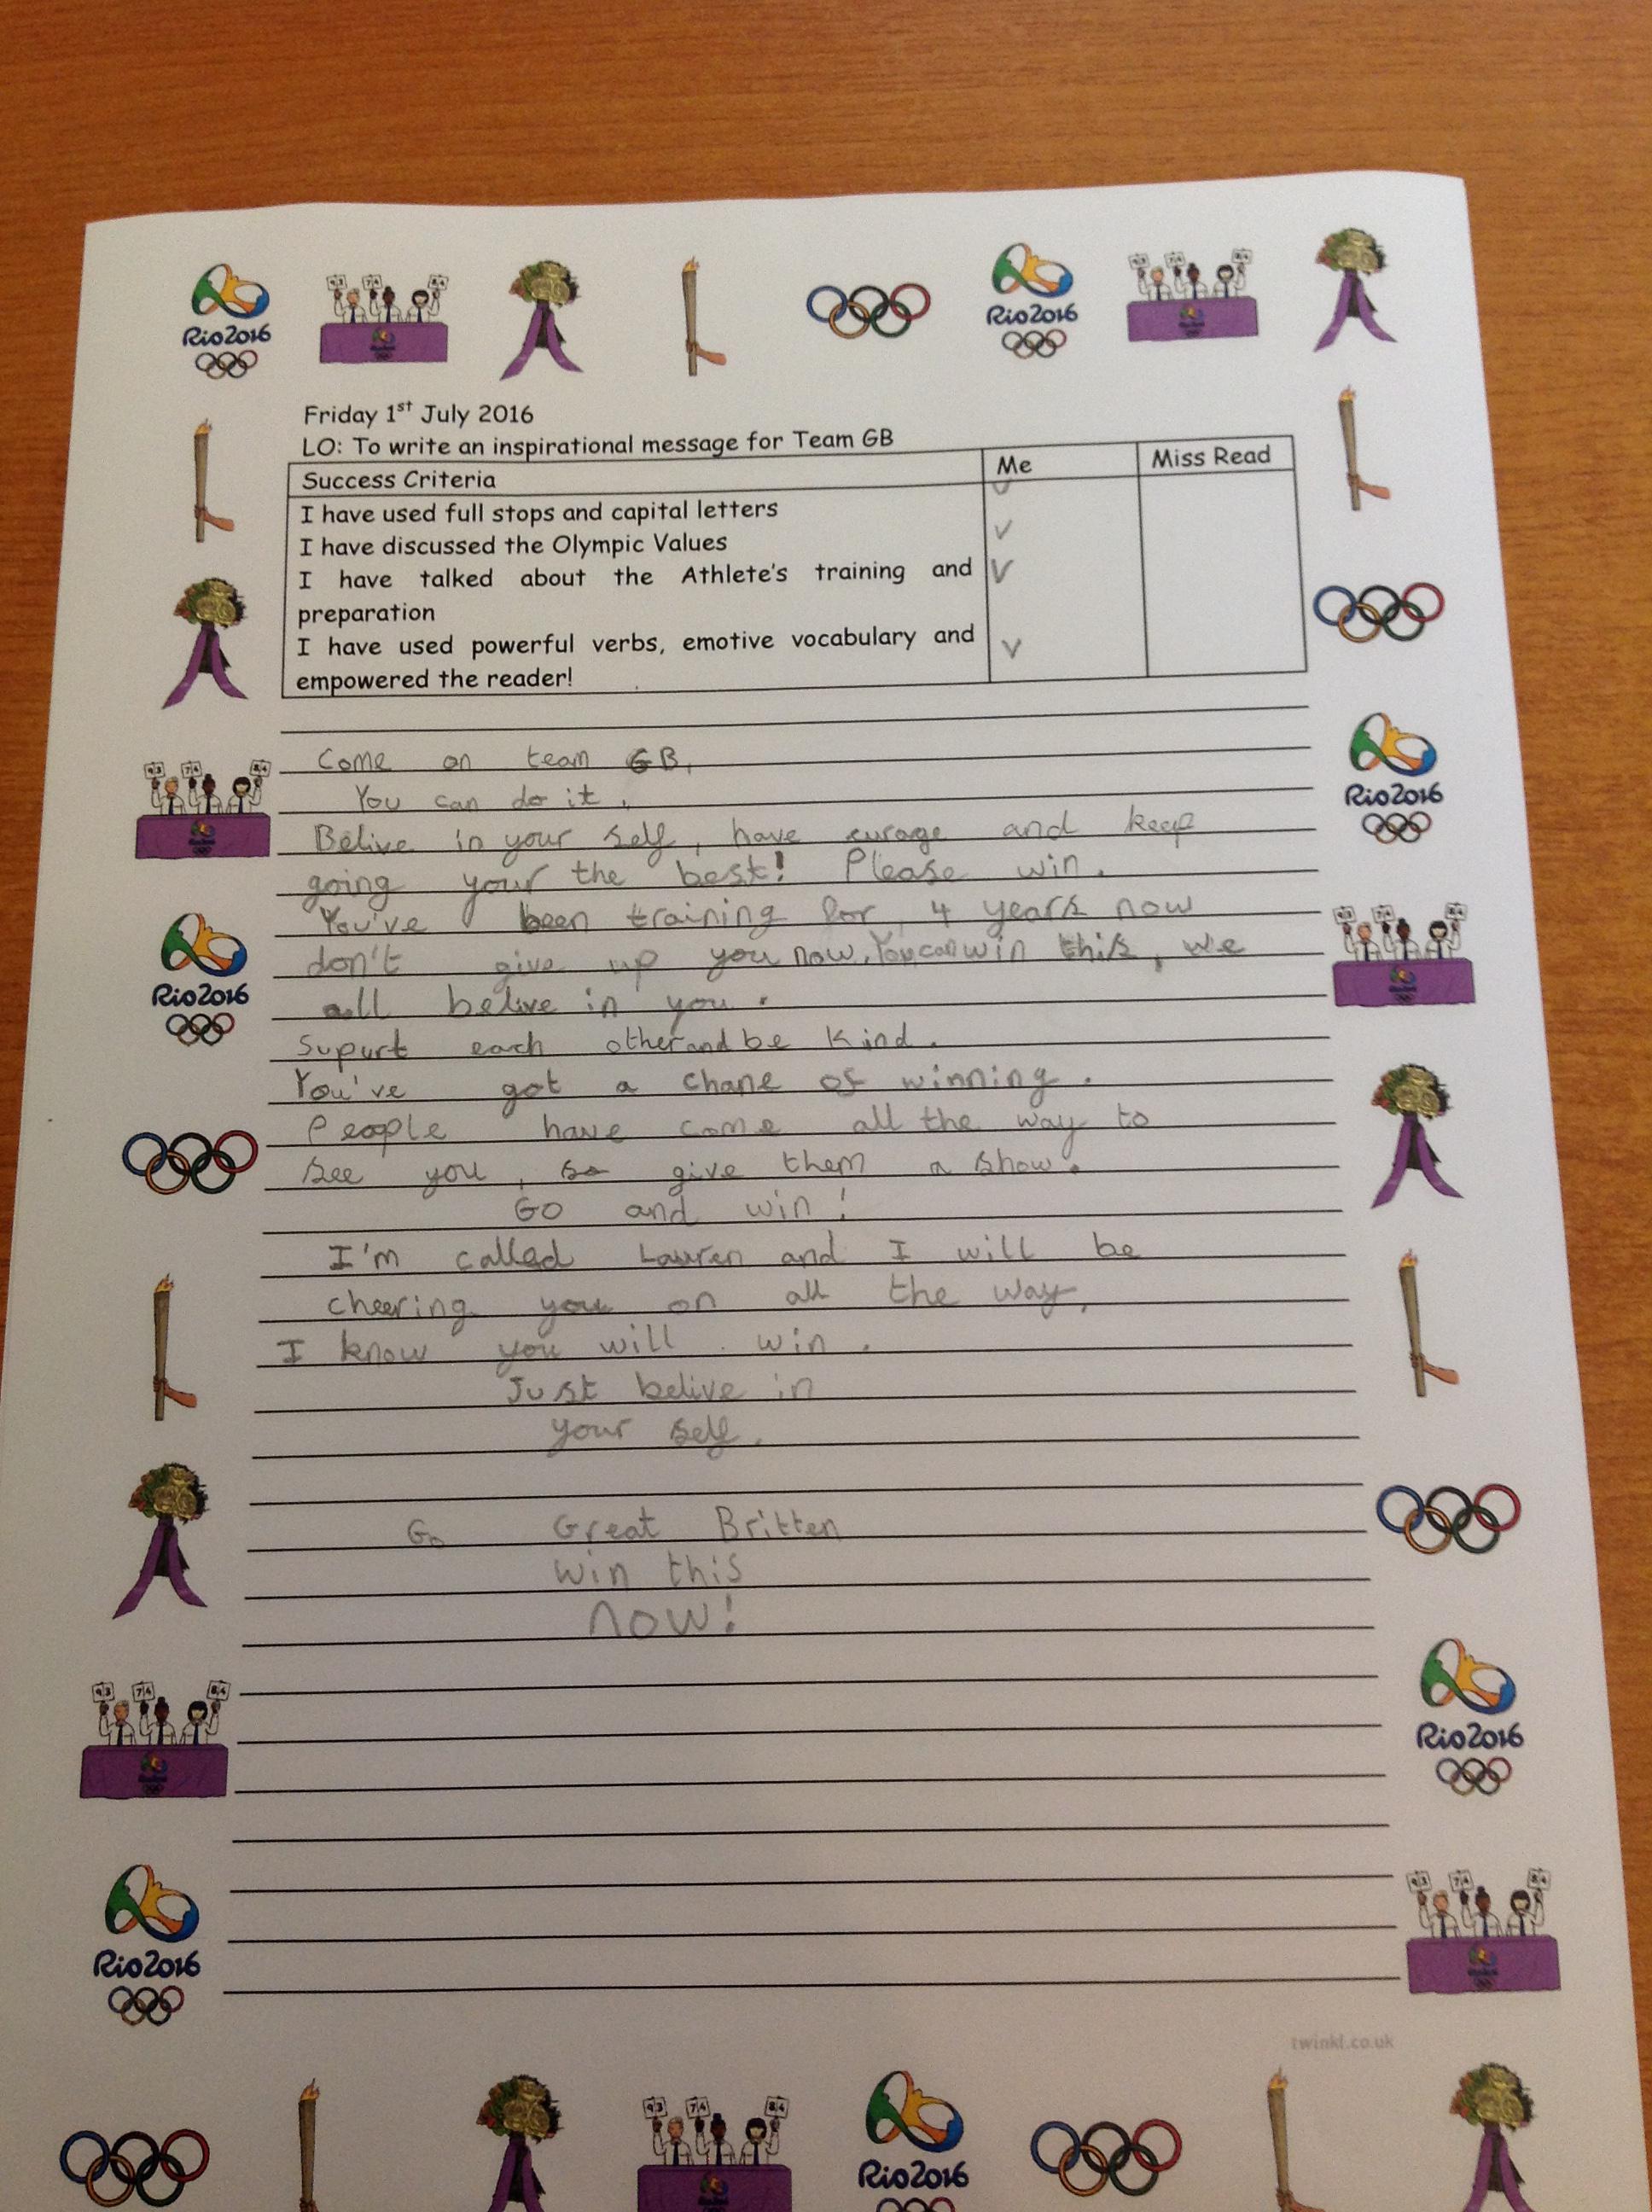 Rio2016 Rio2016
Friday 1st July 2016
LO: To write an inspirational message for Team GB
Success Criteria Me Miss Read
I have used full stops and capital letters
I have discussed the Olympic Values
I have talked about the Athlete's training and
preparation
I have used powerful verbs, emotive vocabulary and
empowered the reader!
Come on team GB,
You can do it.
Rio2016
Belive in your self, have curage and keep
going your the best! Please win.
You've been training for 4 years now
don't give up you now. You can win this, we
Rio2016
all belive in you.
Supurt each other and be kind.
You've got a chane of winning.
People have come all the way to
see you, so give them a show.
GO and win!
I'm called Lauren and I will be
cheering you on all the way,
I know you will win.
Just belive in
your self.
Go Great Britten
win this
now!
Rio2016
Rio2016
twinkl.co.uk
Rio2016